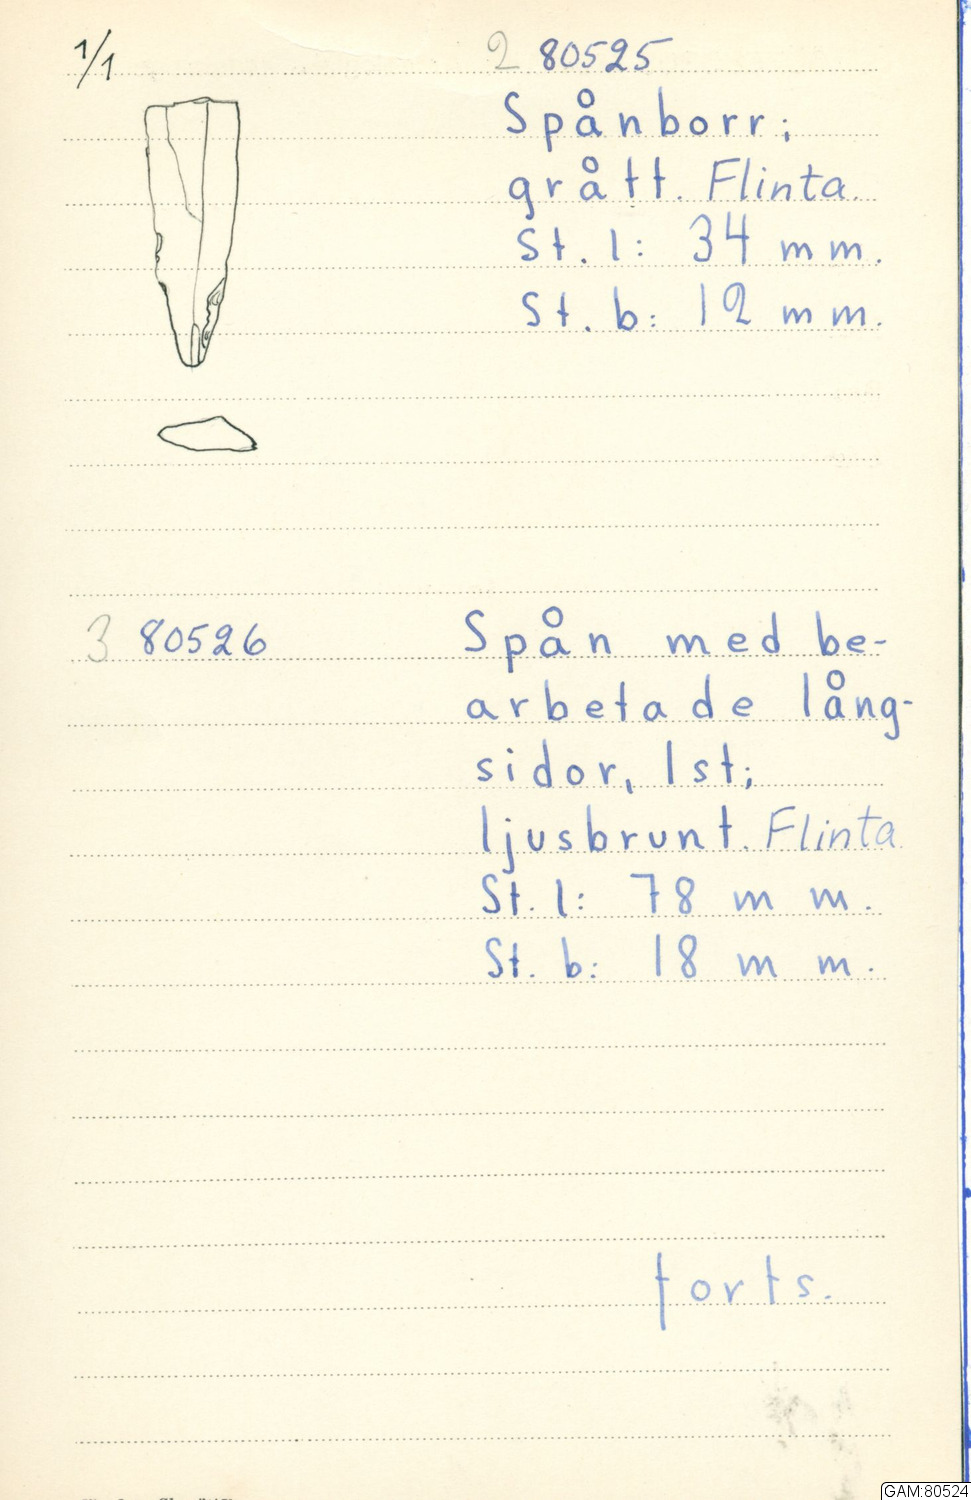 1/1
2 80525
Spånborr;
grått. Flinta.
St. l: 34 mm.
St. b: 12 mm.
3 80526
Spån med be-
arbetade lång-
sidor, 1st;
ljusbrunt. Flinta
St. l: 78 mm.
St. b: 18 mm.
forts.
GAM:80524